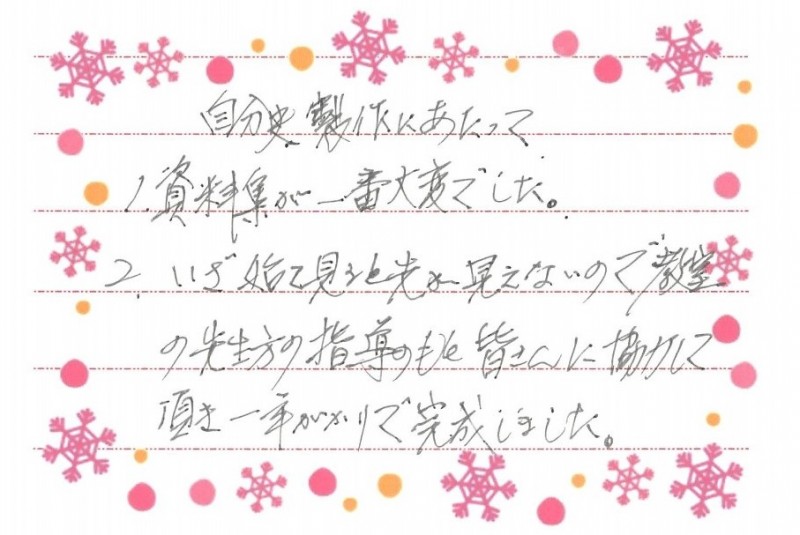 自分史製作にあたって
1.資料集が一番大変でした。
2.いざ始て見ると先が見えないので教室
の先生方の指導のもと皆さんに協力して
頂き一年がかりで完成しました。